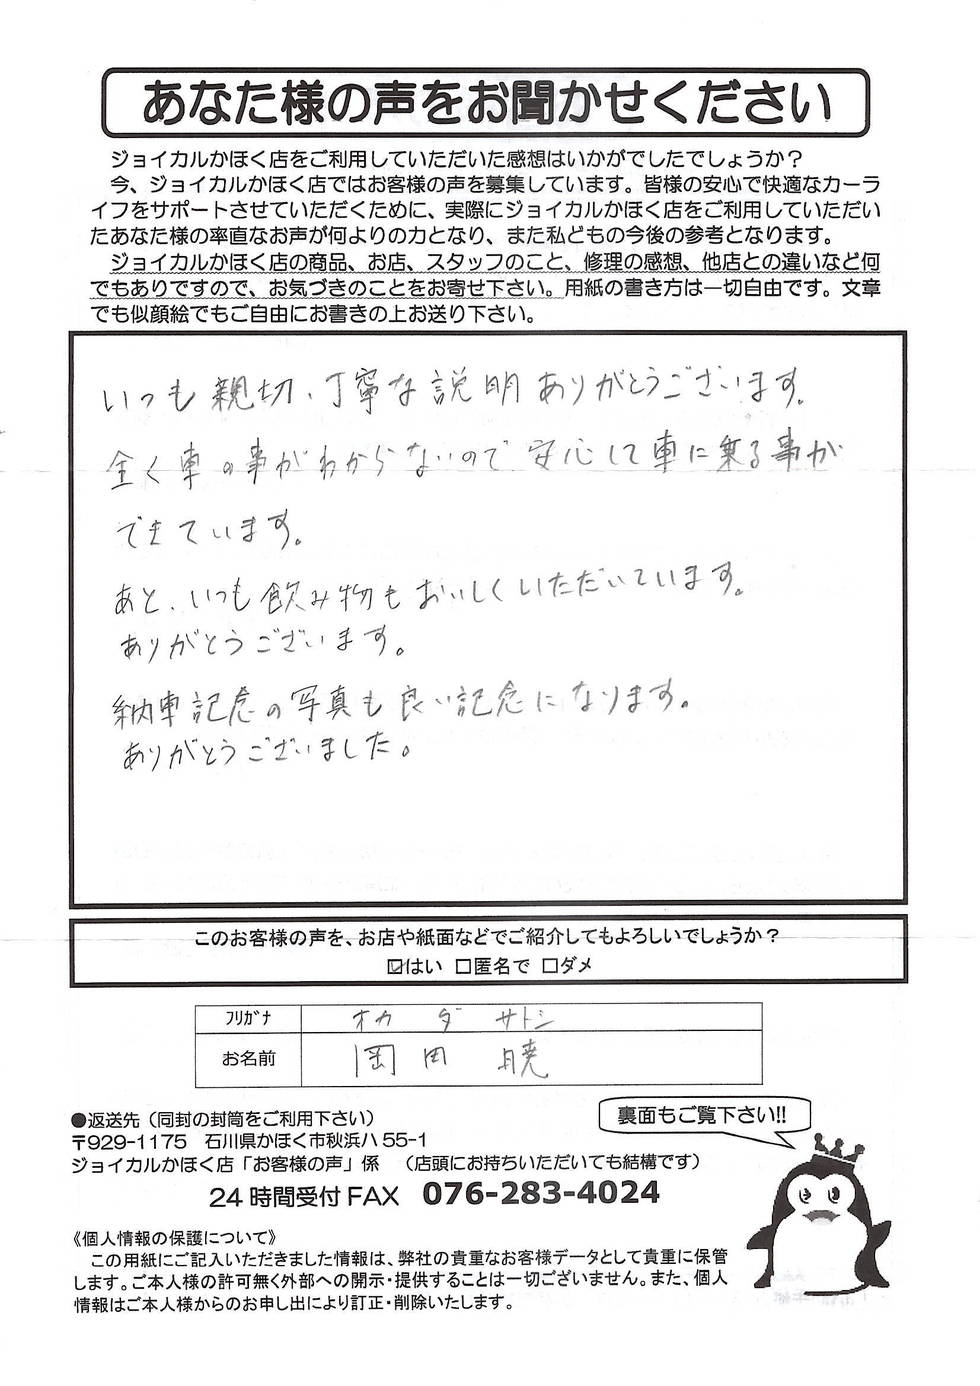 あなた様の声をお聞かせください
ジョイカルかほく店をご利用していただいた感想はいかがでしたでしょうか？
今、ジョイカルかほく店ではお客様の声を募集しています。皆様の安心で快適なカーラ
イフをサポートさせていただくために、実際にジョイカルかほく店をご利用していただい
たあなた様の率直なお声が何よりの力となり、また私どもの今後の参考となります。
ジョイカルかほく店の商品、お店、スタッフのこと、修理の感想、他店との違いなど何
でもありですので、お気づきのことをお寄せ下さい。用紙の書き方は一切自由です。文章
でも似顔絵でもご自由にお書きの上お送り下さい。
いつも親切、丁寧な説明ありがとうございます。
全く車の事がわからないので安心して車に乗る事が
できています。
あと、いつも飲み物もおいしくいただいています。
ありがとうございます。
納車記念の写真も良い記念になります。
ありがとうございました。
このお客様の声を、お店や紙面などでご紹介してもよろしいでしょうか？
☑はい □匿名で □ダメ
フリガナ オカダ サトシ
お名前 岡田 暁
●返送先（同封の封筒をご利用下さい）
〒929-1175 石川県かほく市秋浜ハ55-1
ジョイカルかほく店「お客様の声」係 （店頭にお持ちいただいても結構です）
24時間受付FAX 076-283-4024
裏面もご覧下さい!!
《個人情報の保護について》
この用紙にご記入いただきました情報は、弊社の貴重なお客様データとして貴重に保管
します。ご本人様の許可無く外部への開示・提供することは一切ございません。また、個人
情報はご本人様からのお申し出により訂正・削除いたします。